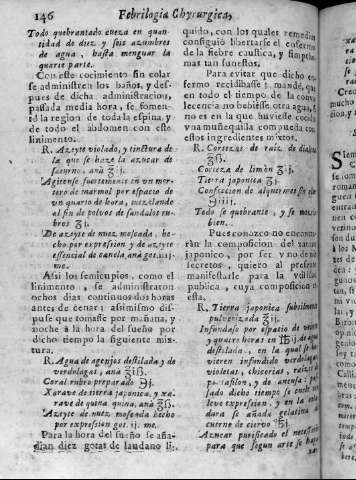 146 Febrilogia Chyrurgica,
Todo quebrantado cueza en quan-
tidad de diez y seis azumbres
de agua, hasta menguar la
quarte parte.
Con este cocimiento sin colar
se administren los baños, y des-
pues de dicha administracion,
passada media hora, se fomen-
te la region de toda la espina, y
de todo el abdomen con este
linimento.
R. Azeyte violado, y tinctura de
la que se haze la azucar de
saturno, anà ℥ij.
Agitense fuertemente en un mor-
tero de marmol por espacio de
un quarto de hora, mezclando
al fin de polvos de sandalos ru-
bros ʒj.
De azeyte de nuez moscada, he-
cho por expression y de azeyte
essencial de canela, anà got. iij.
me.
Assi los semicupios, como el
linimento, se administraron
ochos dias continuos dos horas
antes de cenar: assimismo dis-
puse que tomasse por mañana, y
noche à la hora del sueño por
dicho tiempo la siguiente mix-
tura.
R. Agua de agenjos destilada y de
verdolagas, anà ℥iß.
Coral rubro preparado ℈j.
Xarave de tierra japonica, y xa-
rave de quina quina, anà ʒß.
Azeyte de nuez moscada hecho
por expression got. ij. me.
Para la hora del sueño se aña-
dian diez gotas de laudano li-
quido, con los quales remedios
consiguiò libertarse el enfermo
de la fiebre caustica, y sympto-
mas tan funestos.
Para evitar que dicho en-
fermo recidivasse: mandè, que
en todo el tiempo de la conva-
lecencia no bebiesse otra agua, si
no es en la que huviesse cocido
una muñequilla compuesta con
estos ingredientes mixtos.
R. Cortezas de raiz. de
℥ß.
Corteza de limòn ʒij.
Tierra japonica ʒj.
Confeccion de alquermes sin
℈iiij.
Todo se quebrante, y se mezcle
bien.
Pues conozco no encontra-
ràn la composicion del xarave
japonico, por ser uno de mis
secretos, quiero al presente
manifestarle para la utilidad
publica, cuya composicion es
esta.
R. Tierra japonica subtilmente
pulverizada ʒij.
Infundase por espacio de veinte
y quatro horas en ℔ij. de agua
destilada, en la qual se hu-
vieren infundido verdolagas,
violetas, chicorias, raiz de
y de passa-
sado dicho tiempo se cuele con
leve expression, y en la cola-
dura se añada gelatina de
cuerno de ciervo
Azucar purificado el necessario
para que segun arte se haga
xa-